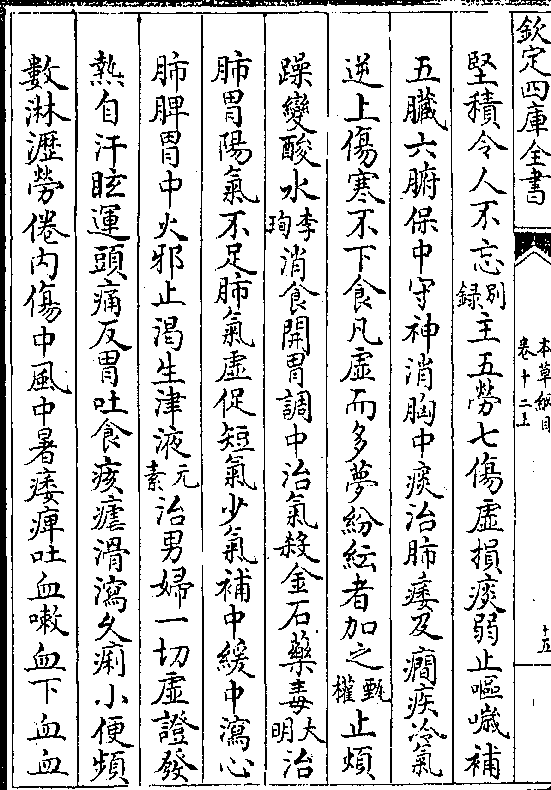 欽定四庫全書
本草綱目
卷十二上
十五
堅積令人不忘别錄主五勞七傷虛損痰弱止嘔噦補
五臟六腑保中守神消胸中痰治肺痿及癎疾冷氣
逆上傷寒不下食凡虛而多夢紛紜者加之甄權止煩
躁變酸水李珣消食開胃調中治氣殺金石藥毒大明治
肺胃陽氣不足肺氣虛促短氣少氣補中緩中瀉心
肺脾胃中火邪止渴生津液元素治男婦一切虛證發
熱自汗眩運頭痛反胃吐食痎瘧滑瀉久痢小便頻
數淋瀝勞倦内傷中風中暑痿痺吐血嗽血下血血